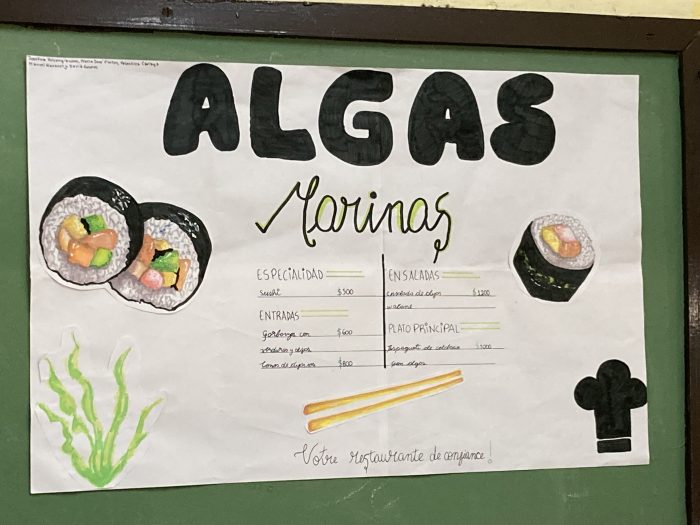 ALGAS
Marinas
ESPECIALIDAD
Sushi $500
ENTRADAS
Garbanzo con $600
verduras y algas
Conos de algas $800
ENSALADAS
Ensalada de algas $1200
wakame
PLATO PRINCIPAL
Espagueti de calabaza $1000
con algas
Votre restaurante de confiance!